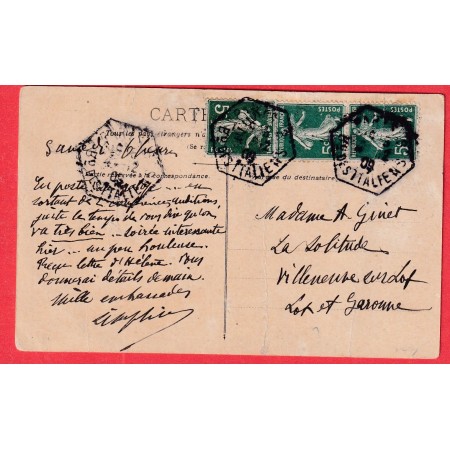 CARTE
Tous les pays étrangers n'a
(Se r
Partie réservée à la correspondance.
que du destinataire
5c POSTES 5c POSTES 5c
ITALIENS
09
Samedi heures
En poste en
sortant de auditions
juste le temps de vous dire qu'on
va très bien soirée intéressante
hier un peu houleuse.
Reçu lettre d'Hélène. Vous
donnerai détails demain.
Mille embrassades
Madame A. Ginet
La Solitude
Villeneuve sur Lot
Lot et Garonne